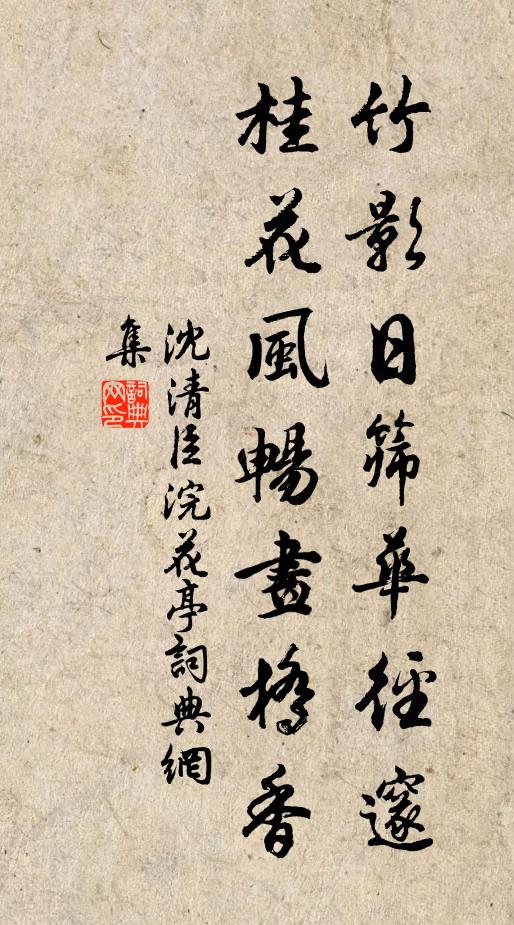 竹影日筛華徑邃
桂花風暢畫橋香
沈清臣浣花亭詞典網
集
詞典網印